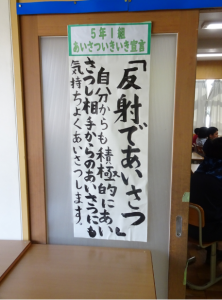 5年1組
あいさついきいき宣言
「反射であいさつ」
自分からも積極的にあい
さつし相手からのあいさつにも
気持ちよくあいさつします。